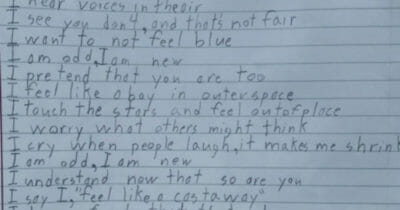 I hear voices in theair
I see you don't, and that's not fair
I want to not feel blue
I am odd, I am new
I pretend that you are too
I feel like a boy in outerspace
I touch the stars and feel outofplace
I worry what others might think
I cry when people laugh, it makes me shrink
I am odd, I am new
I understand now that so are you
I say I, "feel like a castaway"